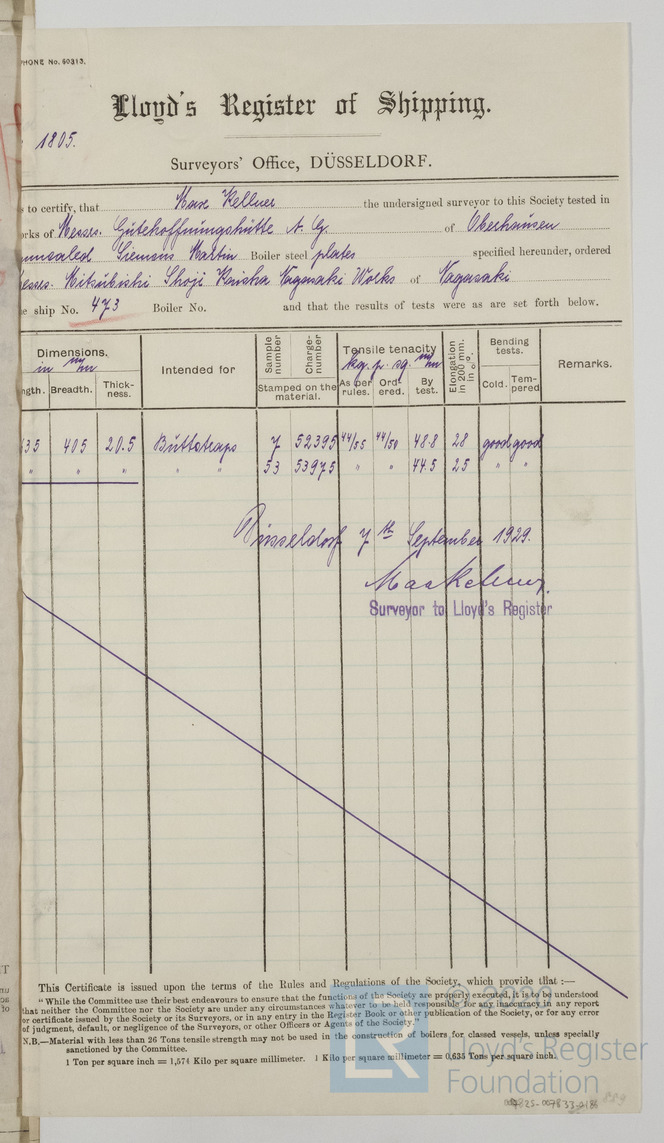 PHONE No. 60313.
Lloyd's Register of Shipping.
1805.
Surveyors' Office, DÜSSELDORF.
to certify, that Max Kellner the undersigned surveyor to this Society tested in
orks of Messrs. Gutehoffnungshütte A. G. of Oberhausen
Siemens Martin Boiler steel plates specified hereunder, ordered
Messrs. Mitsubishi Shoji Kaisha Nagasaki Works of Nagasaki
ship No. 473 Boiler No. and that the results of tests were as are set forth below.
Dimensions. in m/m
ngth. Breadth. Thick-ness.
Intended for
Sample number Charge-number
Stamped on the material.
Tensile tenacity kg. p. sq. m/m
As per rules. Ord-ered. By test.
Elongation in 200 mm. in %.
Bending tests.
Cold. Tem-pered
Remarks.
35 405 20.5 Buttstraps 7 52395 44/55 44/50 48.8 28 good good
" " " " " 53 53975 " " 44.5 25 " "
Düsseldorf 7th September 1929.
Surveyor to Lloyd's Register
This Certificate is issued upon the terms of the Rules and Regulations of the Society, which provide that :—
"While the Committee use their best endeavours to ensure that the functions of the Society are properly executed, it is to be understood
that neither the Committee nor the Society are under any circumstances whatever to be held responsible for any inaccuracy in any report
or certificate issued by the Society or its Surveyors, or in any entry in the Register Book or other publication of the Society, or for any error
of judgment, default, or negligence of the Surveyors, or other Officers or Agents of the Society."
N.B.—Material with less than 26 Tons tensile strength may not be used in the construction of boilers for classed vessels, unless specially
sanctioned by the Committee.
1 Ton per square inch = 1,574 Kilo per square millimeter. 1 Kilo per square millimeter = 0,635 Tons per square inch.
LR
Lloyd's Register
Foundation